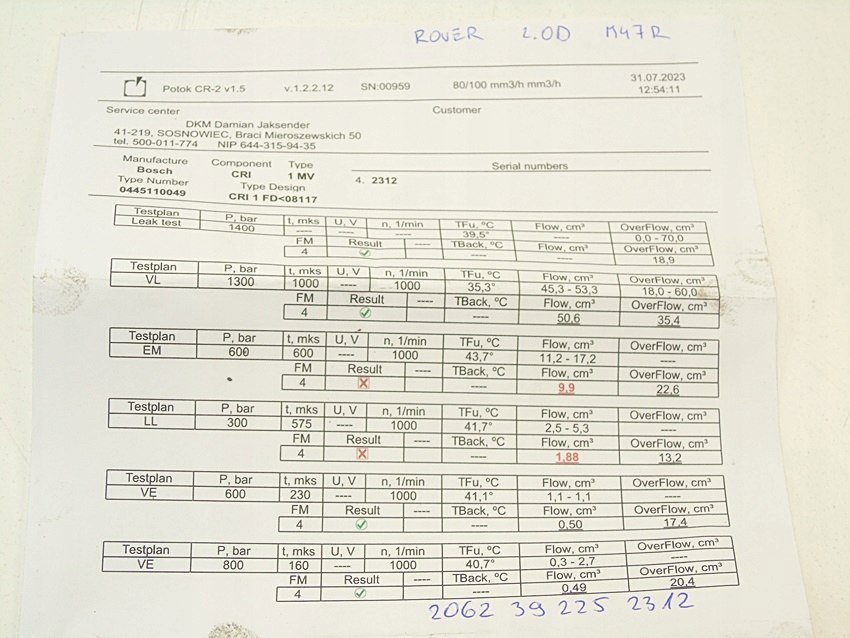 ROVER 2.0D M47R
Potok CR-2 v1.5 v.1.2.2.12 SN:00959 80/100 mm3/h mm3/h 31.07.2023
12:54:11
Service center Customer
DKM Damian Jaksender
41-219, SOSNOWIEC, Braci Mieroszewskich 50
tel. 500-011-774 NIP 644-315-94-35
Manufacture Component Type Serial numbers
Bosch CRI 1 MV
Type Number Type Design 4. 2312
0445110049 CRI 1 FD<08117
Testplan P, bar t, mks U, V n, 1/min TFu, ºC Flow, cm³ OverFlow, cm³
Leak test 1400 ---- ---- ---- 39,5° ---- 0,0 - 70,0
FM Result ---- TBack, ºC Flow, cm³ OverFlow, cm³
4 ---- ---- 18,9
Testplan P, bar t, mks U, V n, 1/min TFu, ºC Flow, cm³ OverFlow, cm³
VL 1300 1000 ---- 1000 35,3° 45,3 - 53,3 18,0 - 60,0
FM Result ---- TBack, ºC Flow, cm³ OverFlow, cm³
4 ---- 50,6 35,4
Testplan P, bar t, mks U, V n, 1/min TFu, ºC Flow, cm³ OverFlow, cm³
EM 600 600 ---- 1000 43,7° 11,2 - 17,2 ----
FM Result ---- TBack, ºC Flow, cm³ OverFlow, cm³
4 ---- 9,9 22,6
Testplan P, bar t, mks U, V n, 1/min TFu, ºC Flow, cm³ OverFlow, cm³
LL 300 575 ---- 1000 41,7° 2,5 - 5,3 ----
FM Result ---- TBack, ºC Flow, cm³ OverFlow, cm³
4 ---- 1,88 13,2
Testplan P, bar t, mks U, V n, 1/min TFu, ºC Flow, cm³ OverFlow, cm³
VE 600 230 ---- 1000 41,1° 1,1 - 1,1 ----
FM Result ---- TBack, ºC Flow, cm³ OverFlow, cm³
4 ---- 0,50 17,4
Testplan P, bar t, mks U, V n, 1/min TFu, ºC Flow, cm³ OverFlow, cm³
VE 800 160 ---- 1000 40,7° 0,3 - 2,7 ----
FM Result ---- TBack, ºC Flow, cm³ OverFlow, cm³
4 ---- 0,49 20,4
2062 39 225 2312